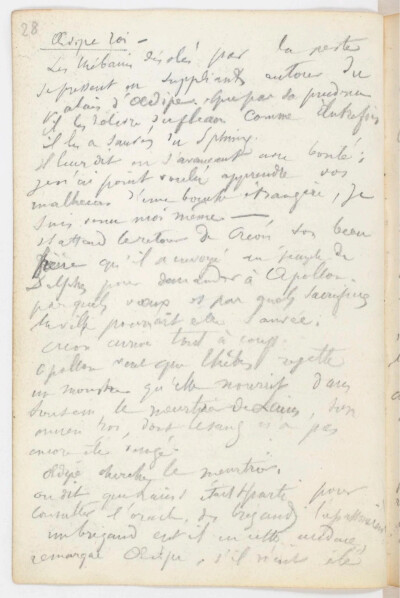 28
Œdipe roi —
Les thébains désolés par la peste
se pressent en suppliants autour du
Palais d'Œdipe. Que par sa prudence
il les délivre du fléau comme autrefois
il les a sauvés du Sphinx.
Il leur dit en s'avançant avec bonté:
je n'ai point voulu apprendre vos
malheurs d'une bouche étrangère, je
suis venu moi même —
Il attend le retour de Créon son beau
frère qu'il a envoyé au temple de
Delphes pour demander à Apollon
par quels vœux et par quels sacrifices
la ville pourrait être sauvée.
Créon arrive tout à coup.
Apollon veut que Thèbes rejette
un monstre qu'elle nourrit dans
son sein le meurtrier de Laius, son
ancien roi, dont le sang n'a pas
encore été vengé.
Œdipe cherche le meurtrier.
on dit que Laius était parti pour
consulter l'oracle, des brigands
un brigand eut-il eu cette audace,
remarque Œdipe, s'il n'eût été